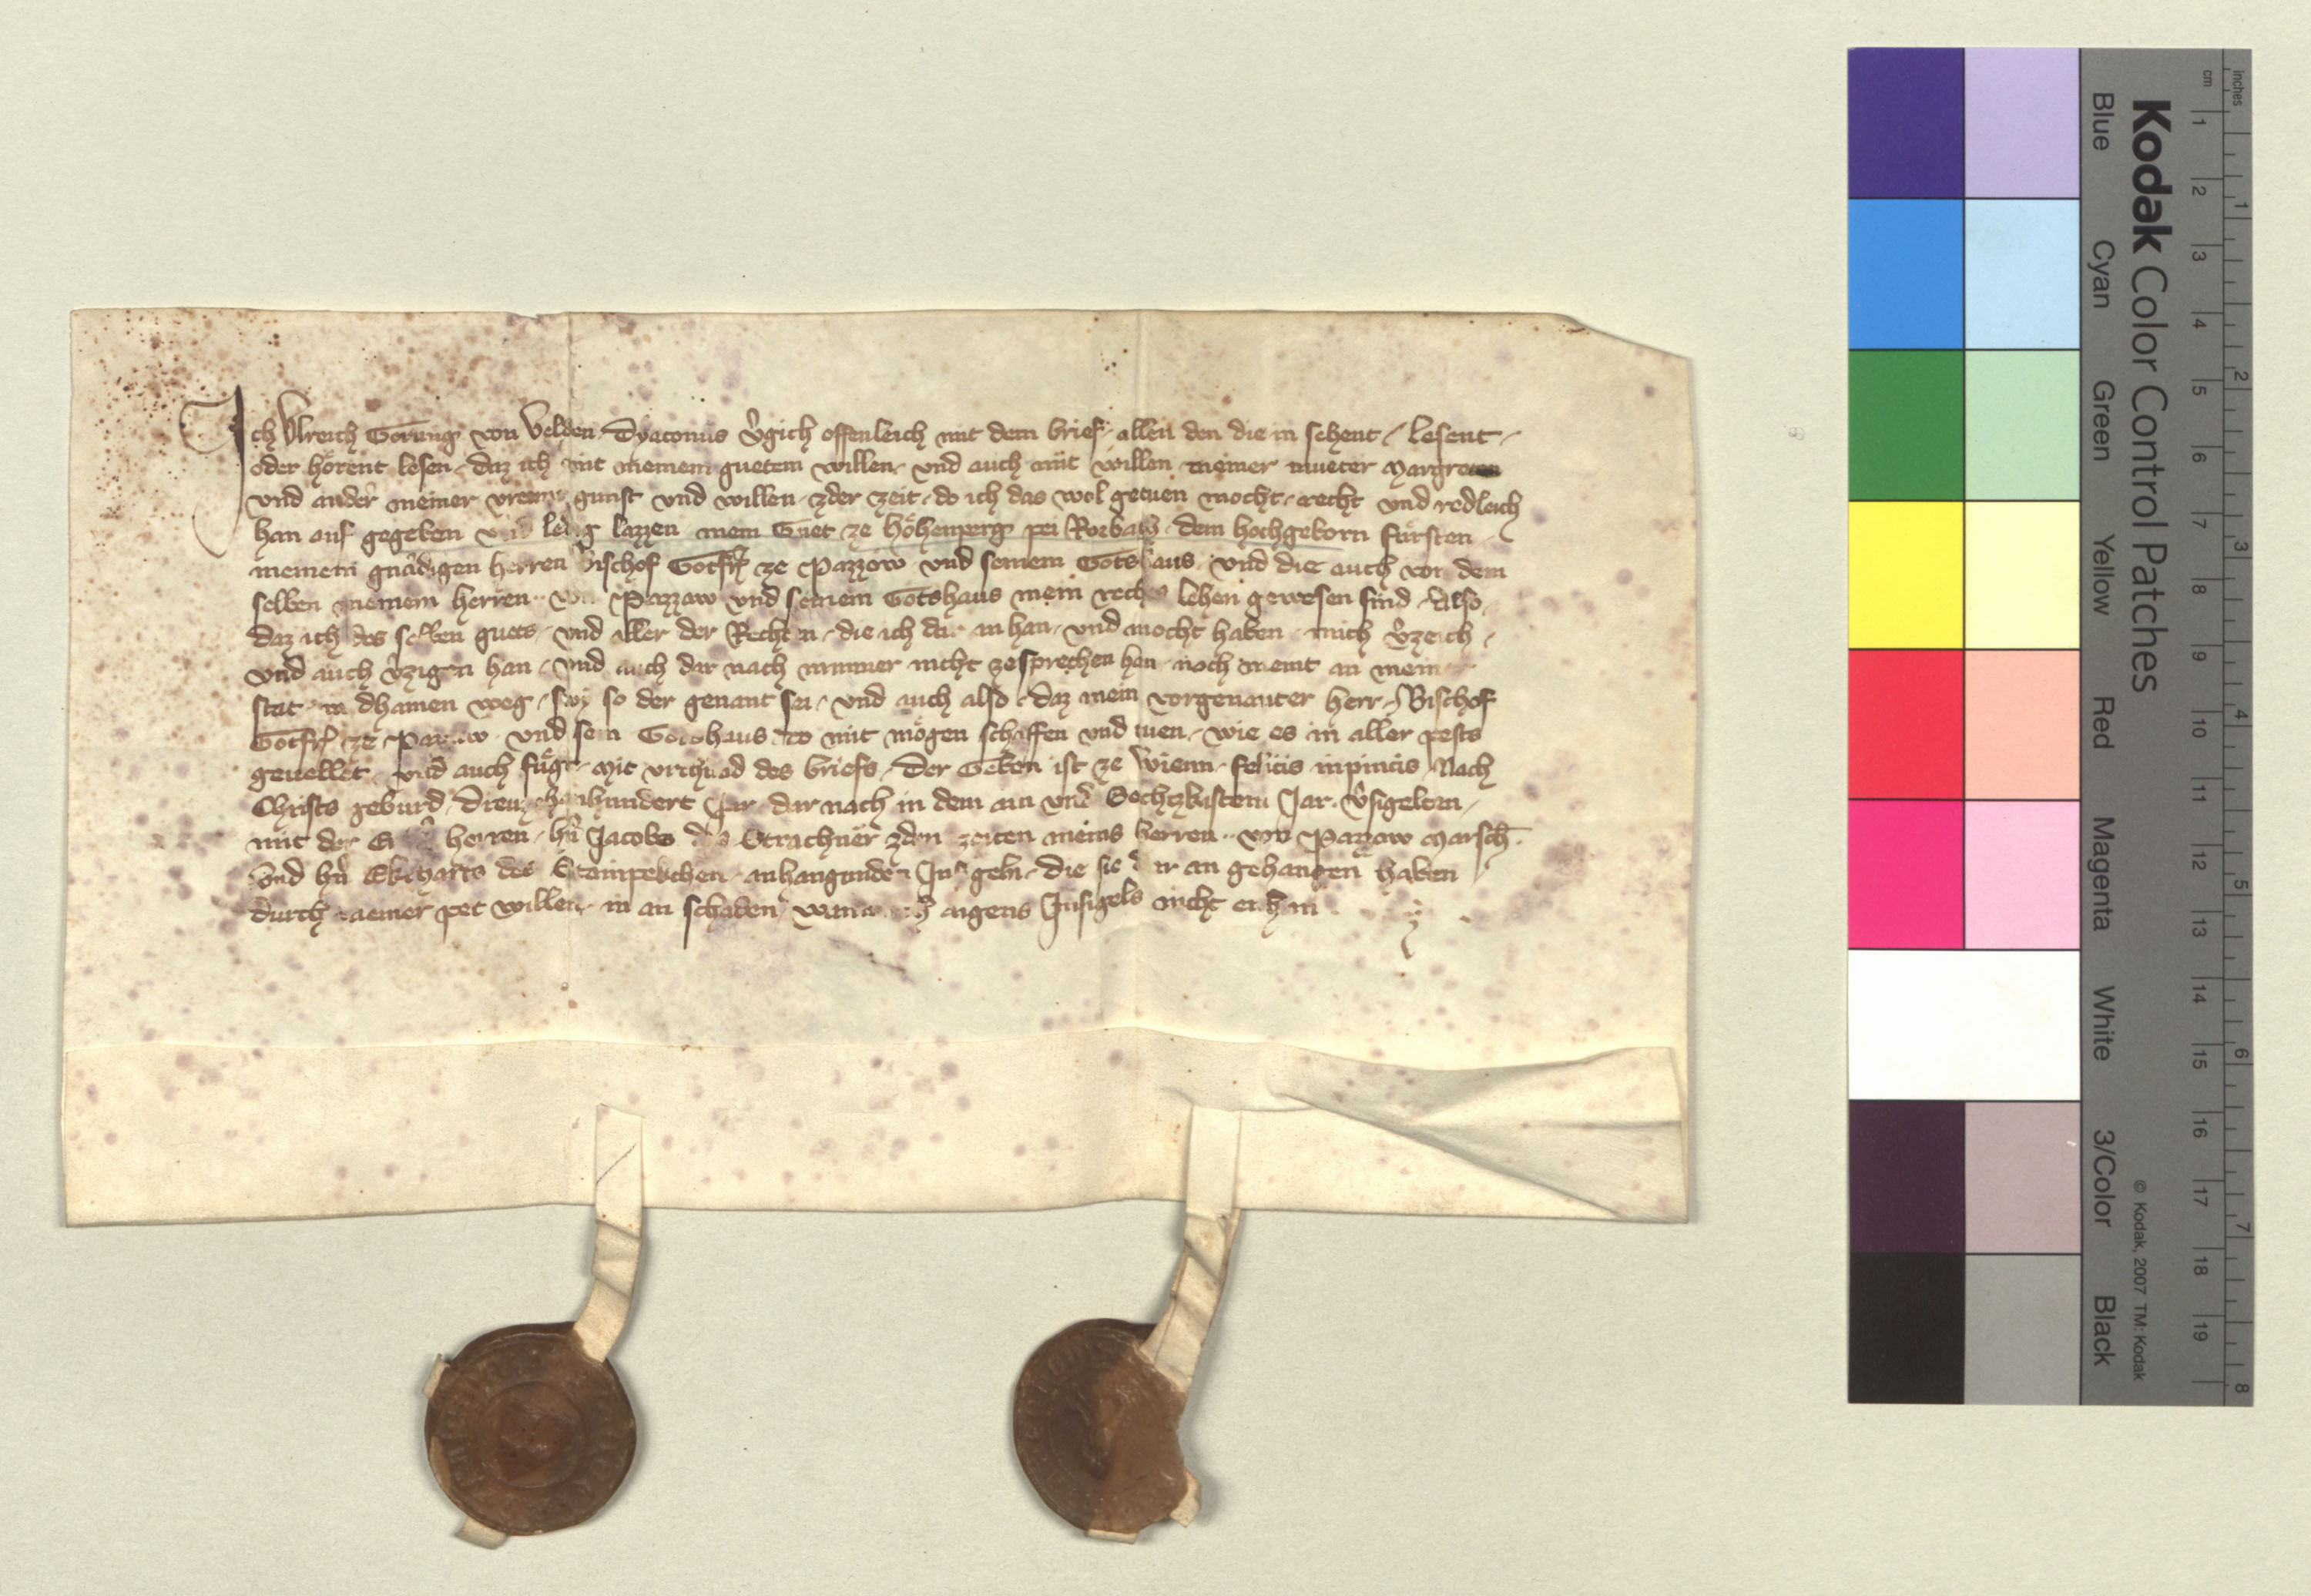 Ich Ulreich Görung von Velden Dyaconus v̂gich offenleich mit dem brief allen den die in sehent lesent
oder hörent lesen daz ich mit meinem guetem willen und auch mit willen meiner mueter
und ander meiner gunst und willen zder zeit do ich das wol getuen mocht recht und redleich
han auf gegeben und ledig lazzen mein Guet ze Höhenperg pei Rorbach dem hochgeborn fürsten
meinem gnädigen herren Bischof Gotfrid ze Pazzow und seinem Gotshaus und die auch von dem
selben meinem herren von Pazzaw und seinem Gotshaus mein rechts lehen gewesen sind Also
daz ich des selben guets und aller der Rechten die ich dar an han und mocht haben mich v̂zeich
und auch v̂zigen han und auch dar nach nimmer nicht ze sprechen han noch niemt an meiner
stat in dhainen weg swi so der genant sei und auch also daz mein vorgenanter herr Bischof
Gotfrid ze Pazzow und sein Gotshaus do mit mögen schaffen und tuen wie es in aller pests
geuellet und auch fügt Mit vrchund des briefs Der Geben ist ze Wienn felicis inpincis Nach
Christs geburd Dreuzehenhundert Jar dar nach in dem ain und Sechtzkistem Jar v̂sigelten
mit der herren hn̂ Jacobs des Strachner zden zeiten meins herren von Pazzow Marsch.
Und hn̂ Ekcharts des anhangunden Insigeln die sie dar an gehangen haben
durch meiner pet willen in an schaden wan ich aigens Insigels nicht enhan
Kodak Color Control Patches
Blue Cyan Green Yellow Red Magenta White 3/Color Black
© Kodak, 2007 TM: Kodak
cm 1 2 3 4 5 6 7 8 9 10 11 12 13 14 15 16 17 18 19
inches 1 2 3 4 5 6 7 8